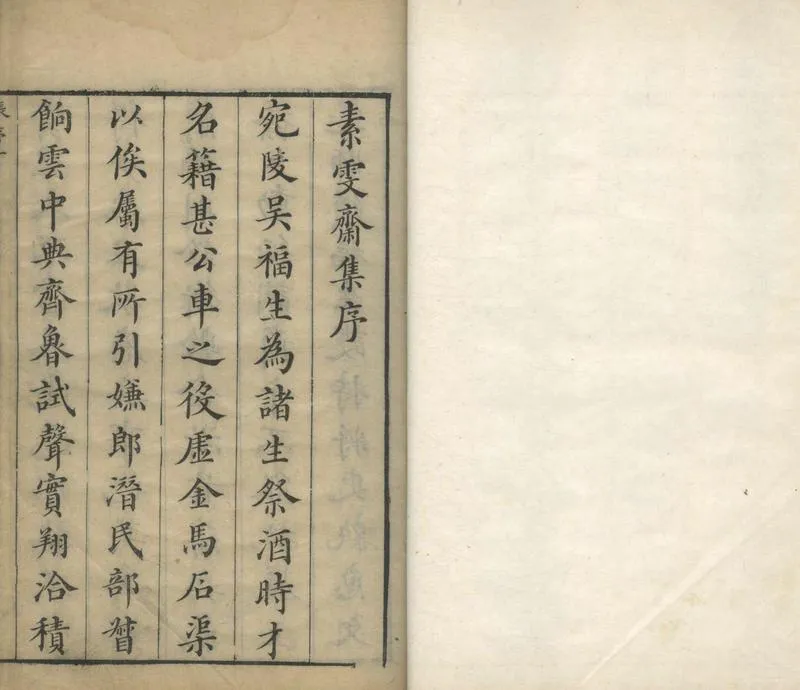 素雯齋集序
宛陵吴福生為諸生祭酒時才
名籍甚公車之役虛金馬石渠
以俟屬有所引嫌郎潛民部督
餉雲中典齊魯試聲實翔洽積